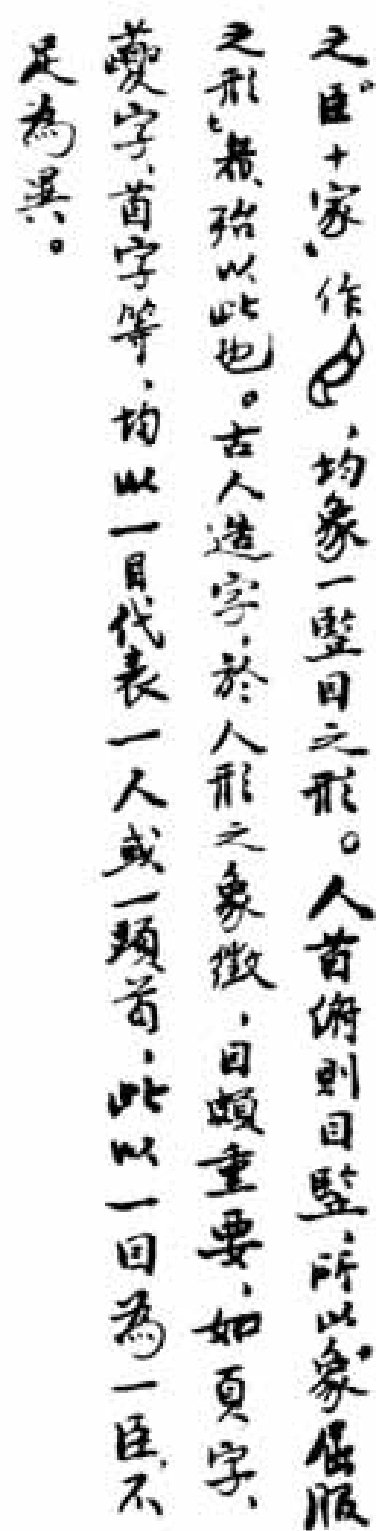 之“臣十家”作，均象一竪目之形。人首俯則目竪，所以“象屈服
之形”者，殆以此也。古人造字，於人形之象徵，目頗重要，如頁字、
夔字、首字等，均以一目代表一人或一頭首，此以一目為一臣，不
足為異。